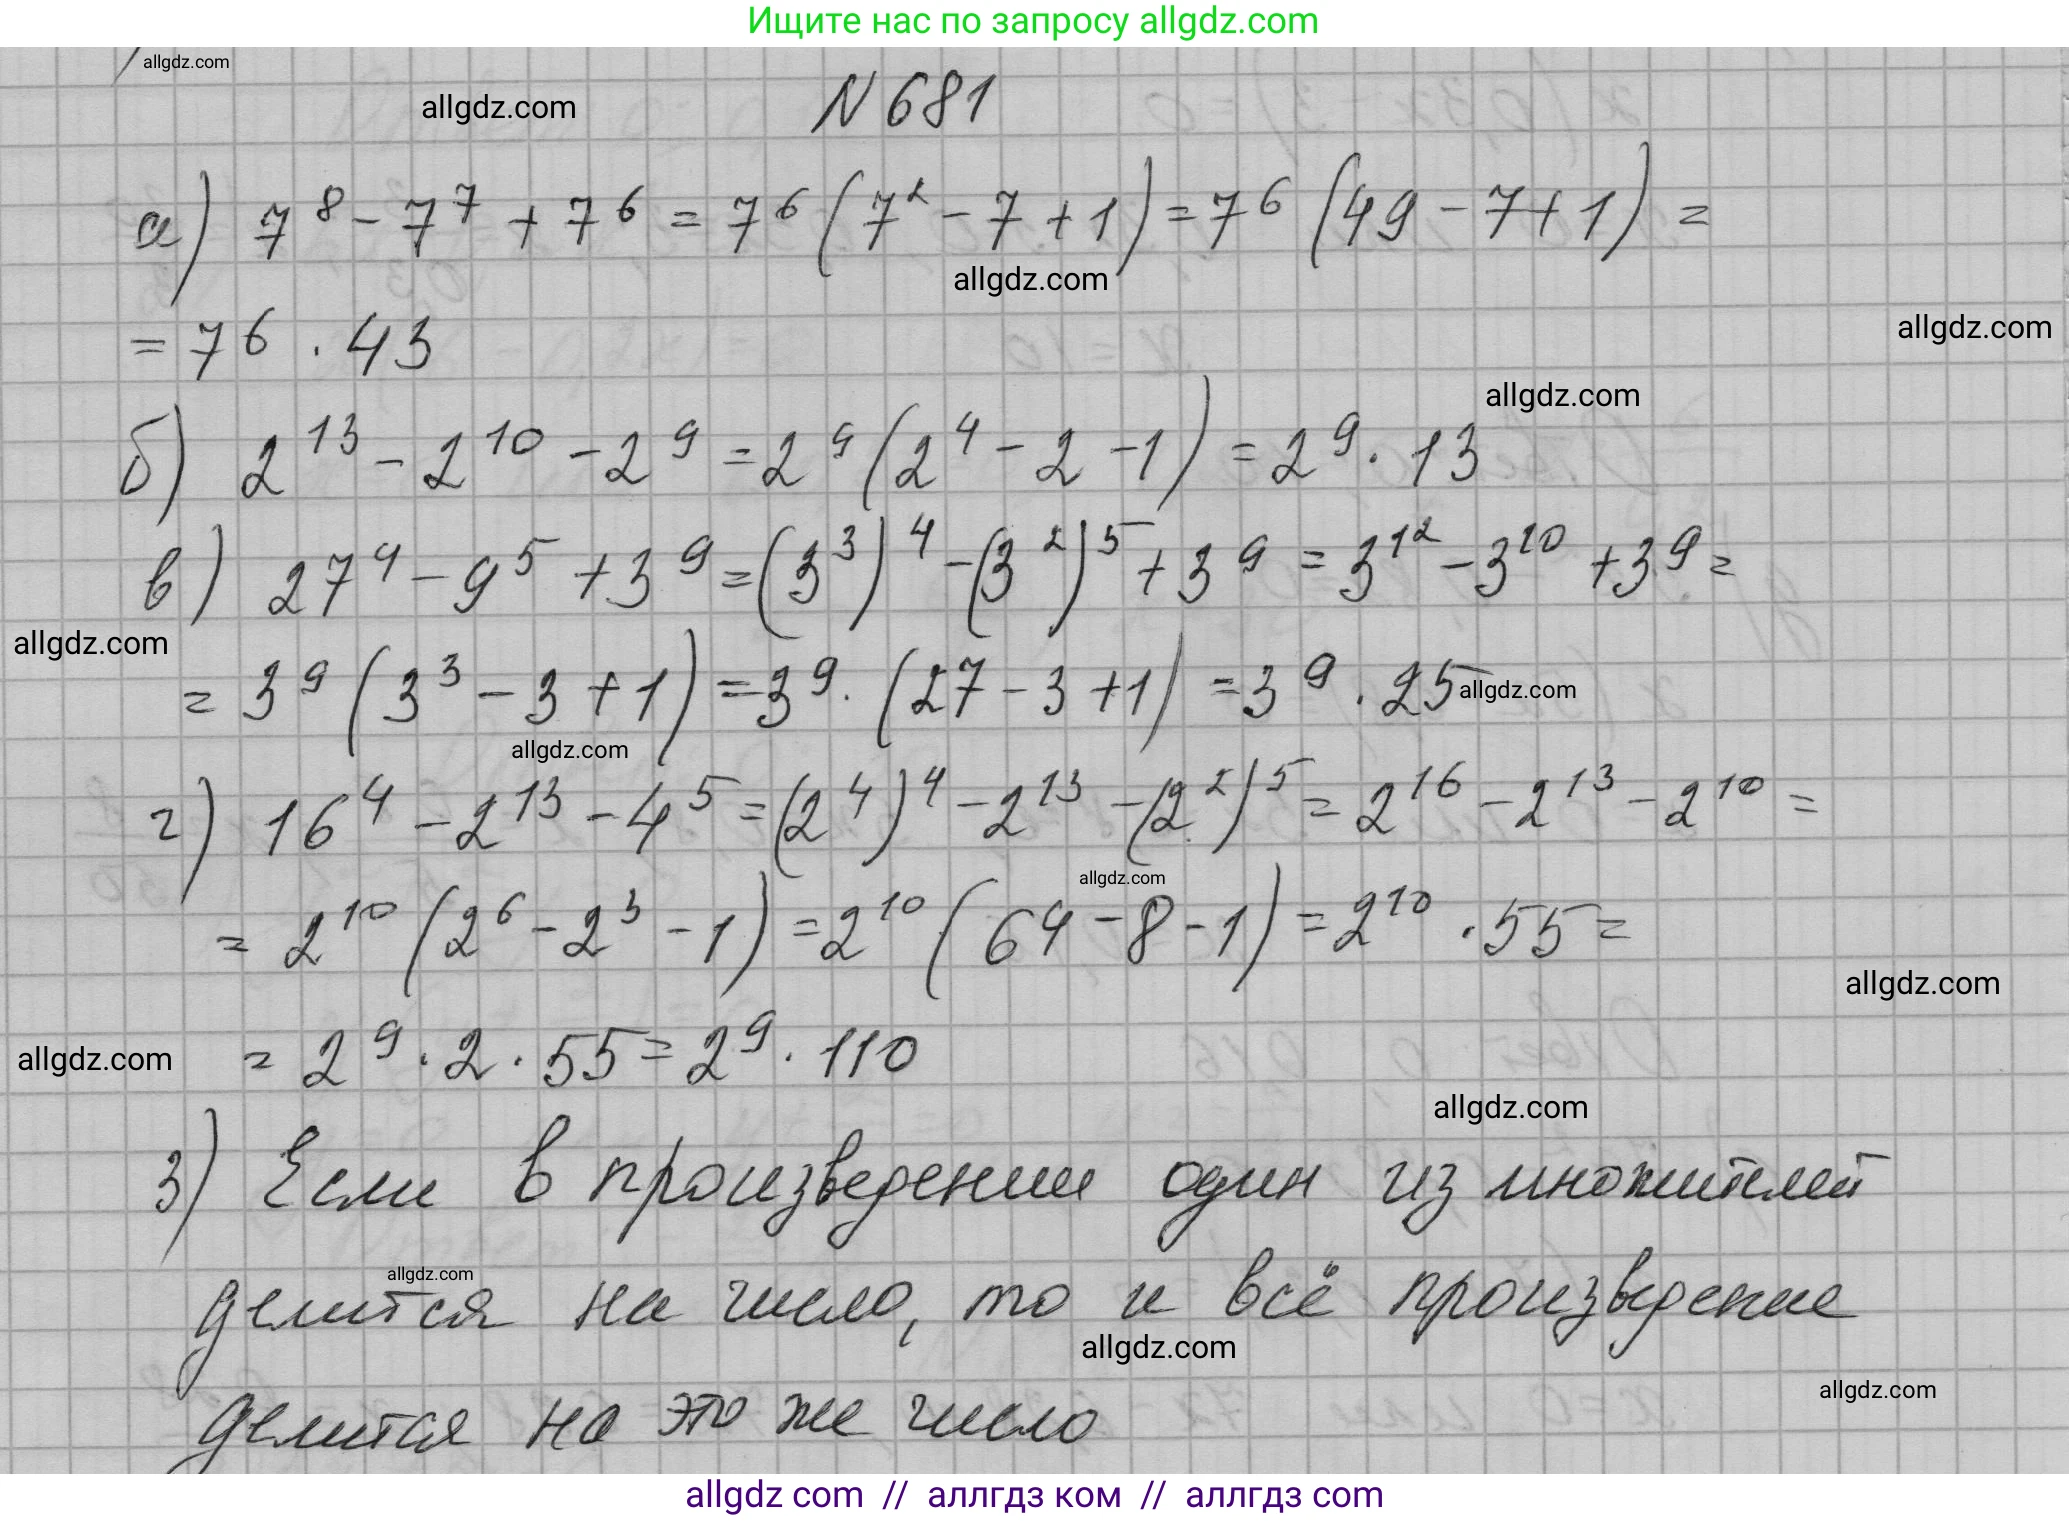 Ищите нас по запросу allgdz.com
allgdz.com
allgdz.com
N 681
а) 7⁸ - 7⁷ + 7⁶ = 7⁶ (7² - 7 + 1) = 7⁶ (49 - 7 + 1) =
allgdz.com
= 7⁶ · 43
allgdz.com
allgdz.com
б) 2¹³ - 2¹⁰ - 2⁹ = 2⁹ (2⁴ - 2 - 1) = 2⁹ · 13
в) 27⁴ - 9⁵ + 3⁹ = (3³)⁴ - (3²)⁵ + 3⁹ = 3¹² - 3¹⁰ + 3⁹ =
allgdz.com
= 3⁹ (3³ - 3 + 1) = 3⁹ · (27 - 3 + 1) = 3⁹ · 25
allgdz.com
allgdz.com
г) 16⁴ - 2¹³ - 4⁵ = (2⁴)⁴ - 2¹³ - (2²)⁵ = 2¹⁶ - 2¹³ - 2¹⁰ =
allgdz.com
= 2¹⁰ (2⁶ - 2³ - 1) = 2¹⁰ (64 - 8 - 1) = 2¹⁰ · 55 =
allgdz.com
allgdz.com
= 2⁹ · 2 · 55 = 2⁹ · 110
allgdz.com
3) Если в произведении один из множителей
allgdz.com
делится на число, то и всё произведение
allgdz.com
allgdz.com
делится на это же число
allgdz com // аллгдз ком // аллгдз com